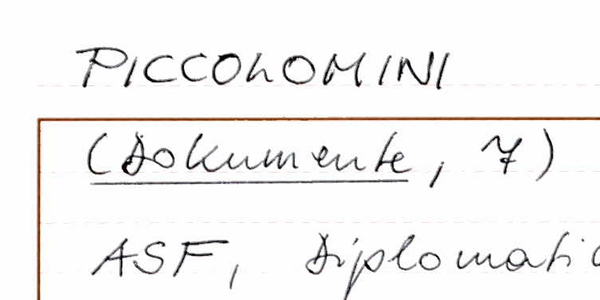 PICCOLOMINI
(Dokumente, 7)
ASF, Diplomatic